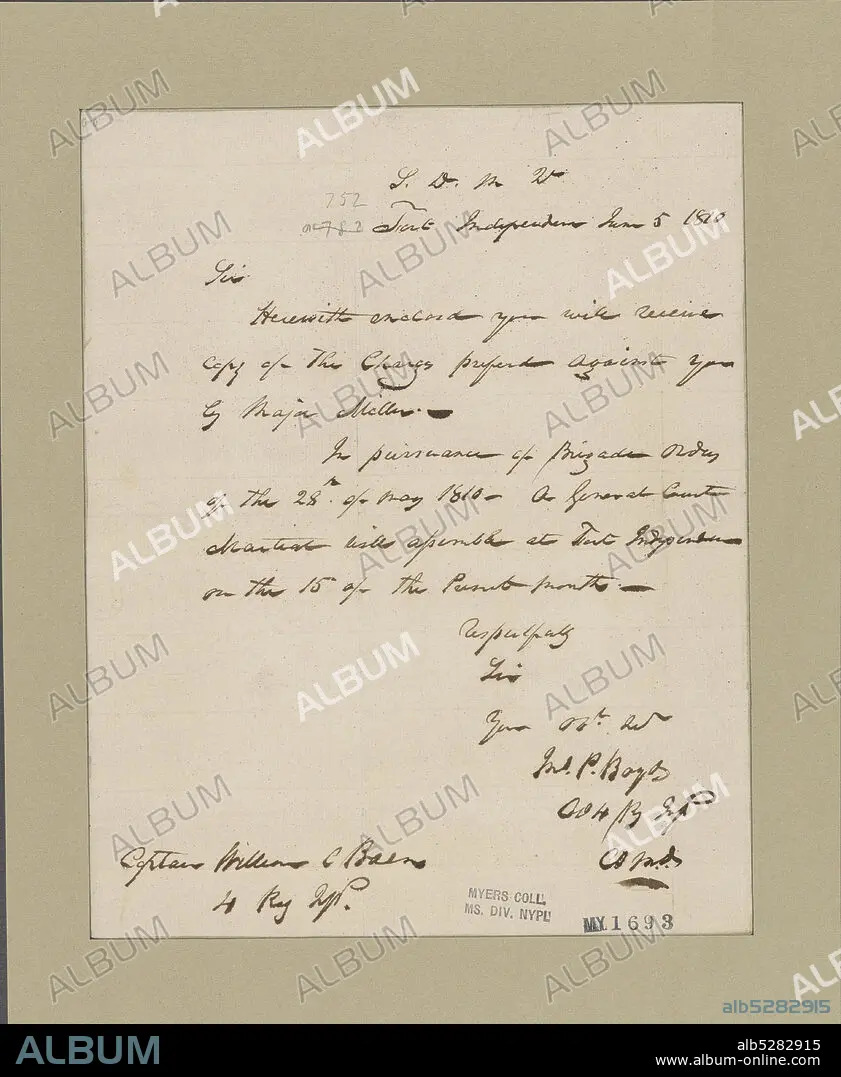 S. D. M D
752
Fort Independen June 5 1810
Sir
Herewith enclosed you will receive
copy of the Charges preferd against you
by Major Miller.
In pursuance of Brigade Orders
of the 28th of may 1810 - A General Court
Martial will assemble at Fort Independen
on the 15 of the Present month.
respectfully
Sir
Your
Jno. P. Boyd
Captain William C Baen
4 Reg Inf.
MYERS COLL.
MS. DIV. NYPL
MY.1693
ALBUM
alb5282915
ALBUM
alb5282915
www.album-online.com